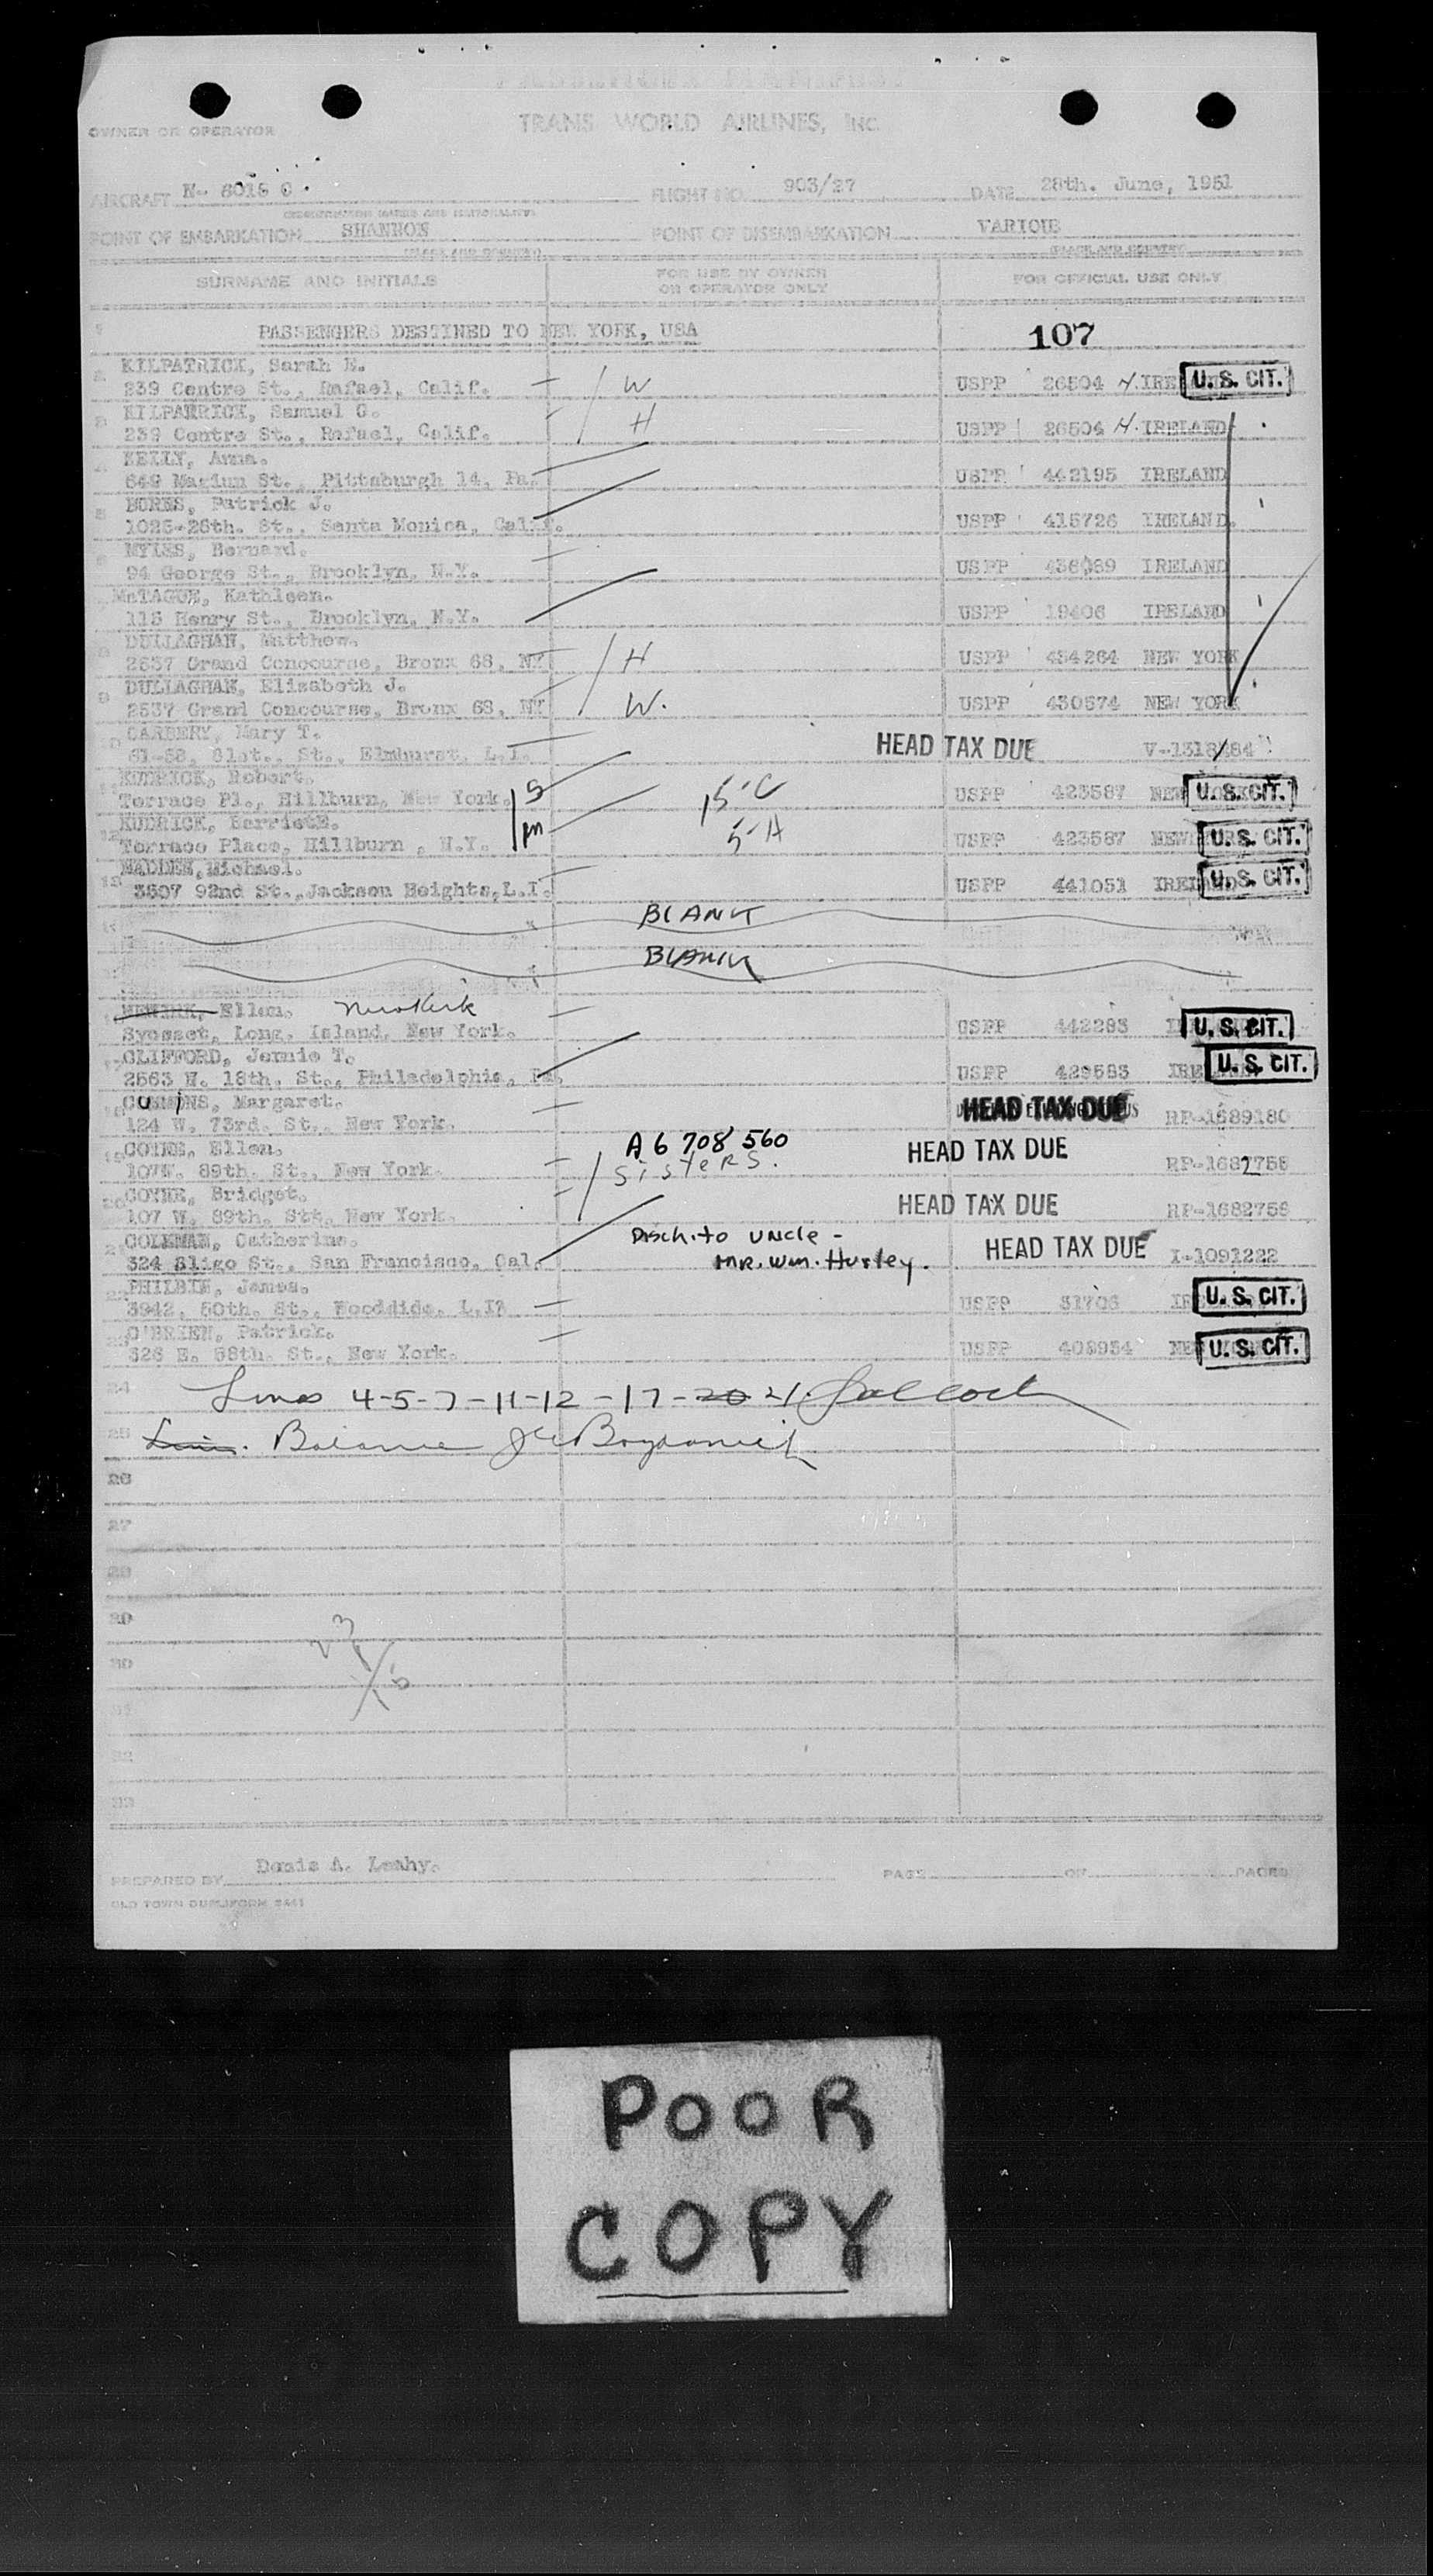 PASSENGER MANIFEST
OWNER OR OPERATOR TRANS WORLD AIRLINES, INC.
AIRCRAFT N- 6015 C. FLIGHT NO. 903/27 DATE 28th. June, 1951
(REGISTRATION MARKS AND NATIONALITY)
POINT OF EMBARKATION SHANNON POINT OF DISEMBARKATION VARIOUS
(PLACE AND COUNTRY) (PLACE AND COUNTRY)
SURNAME AND INITIALS FOR USE BY OWNER OR OPERATOR ONLY FOR OFFICIAL USE ONLY
1 PASSENGERS DESTINED TO NEW YORK, USA 107
2 KILPATRICK, Sarah E.
239 Centre St., Rafael, Calif. W USPP 26504 H. IRE U.S. CIT.
3 KILPATRICK, Samuel G.
239 Centre St., Rafael, Calif. H USPP 26504 H. IRELAND
4 KELLY, Anna.
649 St., Pittsburgh 14, Pa. USPP 442195 IRELAND
5 BURNS, Patrick J.
1025-26th. St., Santa Monica, Calif. USPP 415726 IRELAND.
6 MYLES, Bernard.
94 George St., Brooklyn, N.Y. USPP IRELAND
7 McTAGUE, Kathleen.
115 Henry St., Brooklyn, N.Y. USPP 19406 IRELAND
8 DULLAGHAN, Matthew.
2537 Grand Concourse, Bronx 68, NY H USPP 454264 NEW YORK
9 DULLAGHAN, Elizabeth J.
2537 Grand Concourse, Bronx 68, NY W. USPP 430574 NEW YORK
10 CARBERY, Mary T.
61-58, 81st., St., Elmhurst, L.I. HEAD TAX DUE
11 KUDRICK, Robert.
Terrace Pl., Hillburn, New York. S 15-C USPP 423587 NEW U.S. CIT.
12 KUDRICK, HarrietE.
Terrace Place, Hillburn , N.Y. m 5-A USPP 423587 NEW U.S. CIT.
13 MADDEN, Michael.
3507 92nd St., Jackson Heights, L.I. USPP 441051 IRELAND U.S. CIT.
14 BLANK
15 BLANK
16 Ellen. Newkirk
Syosset, Long. Island, New York. USPP 442283 U.S. CIT.
17 CLIFFORD, Jennie T.
2563 N. 18th. St., Philadelphia, Pa. USPP 429583 IRE U.S. CIT.
18 Margaret.
124 W. 73rd. St., New York. HEAD TAX DUE RP-1689180
19 COYNE, Ellen. A6 708 560
107W. 89th. St., New York. Sisters. HEAD TAX DUE RP-1682758
20 COYNE, Bridget.
107 W. 89th. St., New York. HEAD TAX DUE RP-1682756
21 COLEMAN, Catherine. Disch. to uncle -
324 Sligo St., San Francisco, Cal. Mr. Wm. Hurley. HEAD TAX DUE I-1091222
22 PHILBIN, James.
3942, 50th. St., Woodside, L.I. USPP 31706 U.S. CIT.
23 O'BRIEN, Patrick.
326 E. 58th. St., New York. USPP 408954 NE U.S. CIT.
24 Lines 4-5-7-11-12-17-20 21.
25 Balance
26
27
28
29
30
31
32
33
PREPARED BY Denis A. Leahy. PAGE OF PAGES
OLD TOWN DUPLIFORM
POOR
COPY